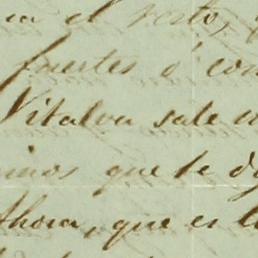 el resto,
fuertes ó con
Vitalva sale
que te
Ahora, que es